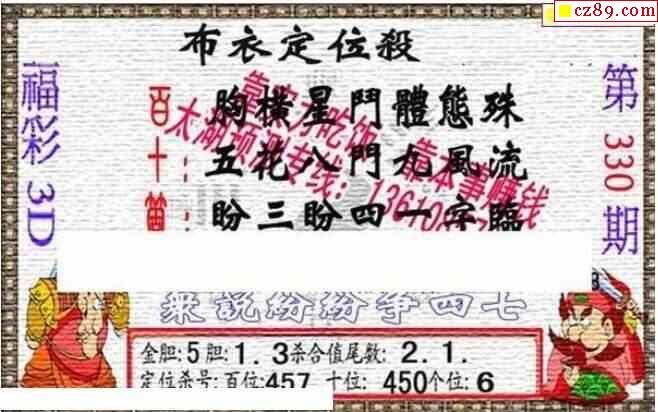 cz89.com
布衣定位殺
福彩3D
第330期
百：胸橫星鬥體態殊
十：五花八門九風流
個：盼三盼四一字臨
靠实力吃饭 靠本事赚钱
太湖预测专线：13610
衆説紛紛爭四七
金胆:5 胆:1.3 杀合值尾数:2.1.
定位杀号:百位:457 十位:450 个位:6